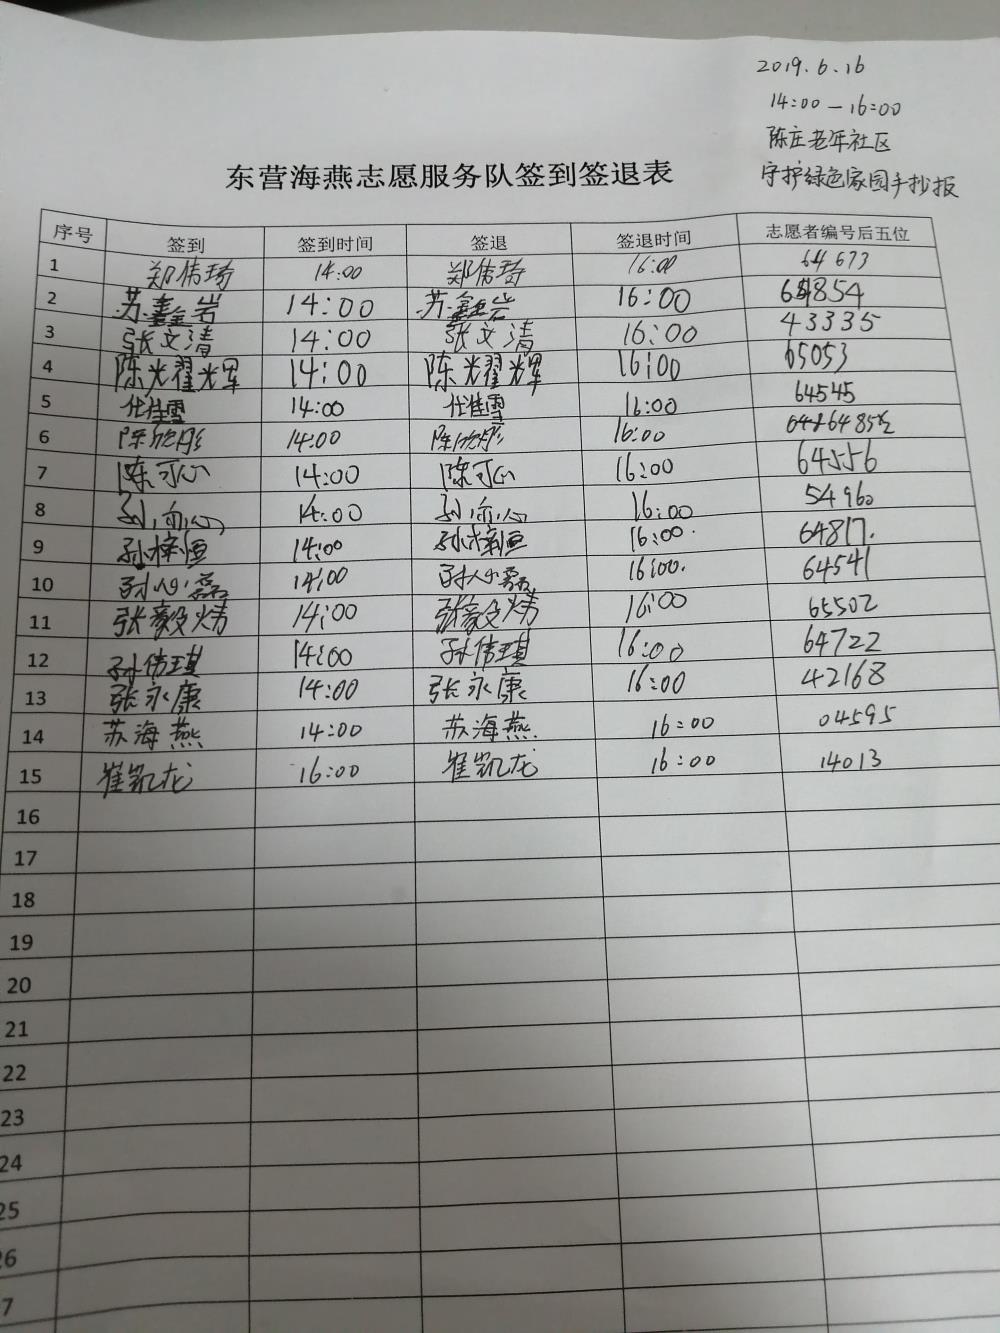 2019.6.16
14:00—16:00
陈庄老年社区
守护绿色家园手抄报
东营海燕志愿服务队签到签退表
序号 签到 签到时间 签退 签退时间 志愿者编号后五位
1 郑伟琦 14:00 郑伟琦 16:00 64673
2 苏鑫岩 14:00 苏鑫岩 16:00
3 张文清 14:00 张文清 16:00 43335
4 陈光耀光辉 14:00 陈光耀辉 16:00 65053
5 任佳雪 14:00 任佳雪 16:00 64545
6 陈欣彤 14:00 陈欣彤 16:00
7 陈可心 14:00 陈可心 16:00 64556
8 14:00 16:00 54960
9 孙梓恒 14:00 孙梓恒 16:00 64817.
10 14:00 16:00. 64541
11 张毅炜 14:00 张毅炜 16:00 65502
12 孙伟琪 14:00 孙伟琪 16:00 64722
13 张永康 14:00 张永康 16:00 42168
14 苏海燕 14:00 苏海燕 16:00 04595
15 崔凯龙 16:00 崔凯龙 16:00 14013
16
17
18
19
20
21
22
23
24
25
26